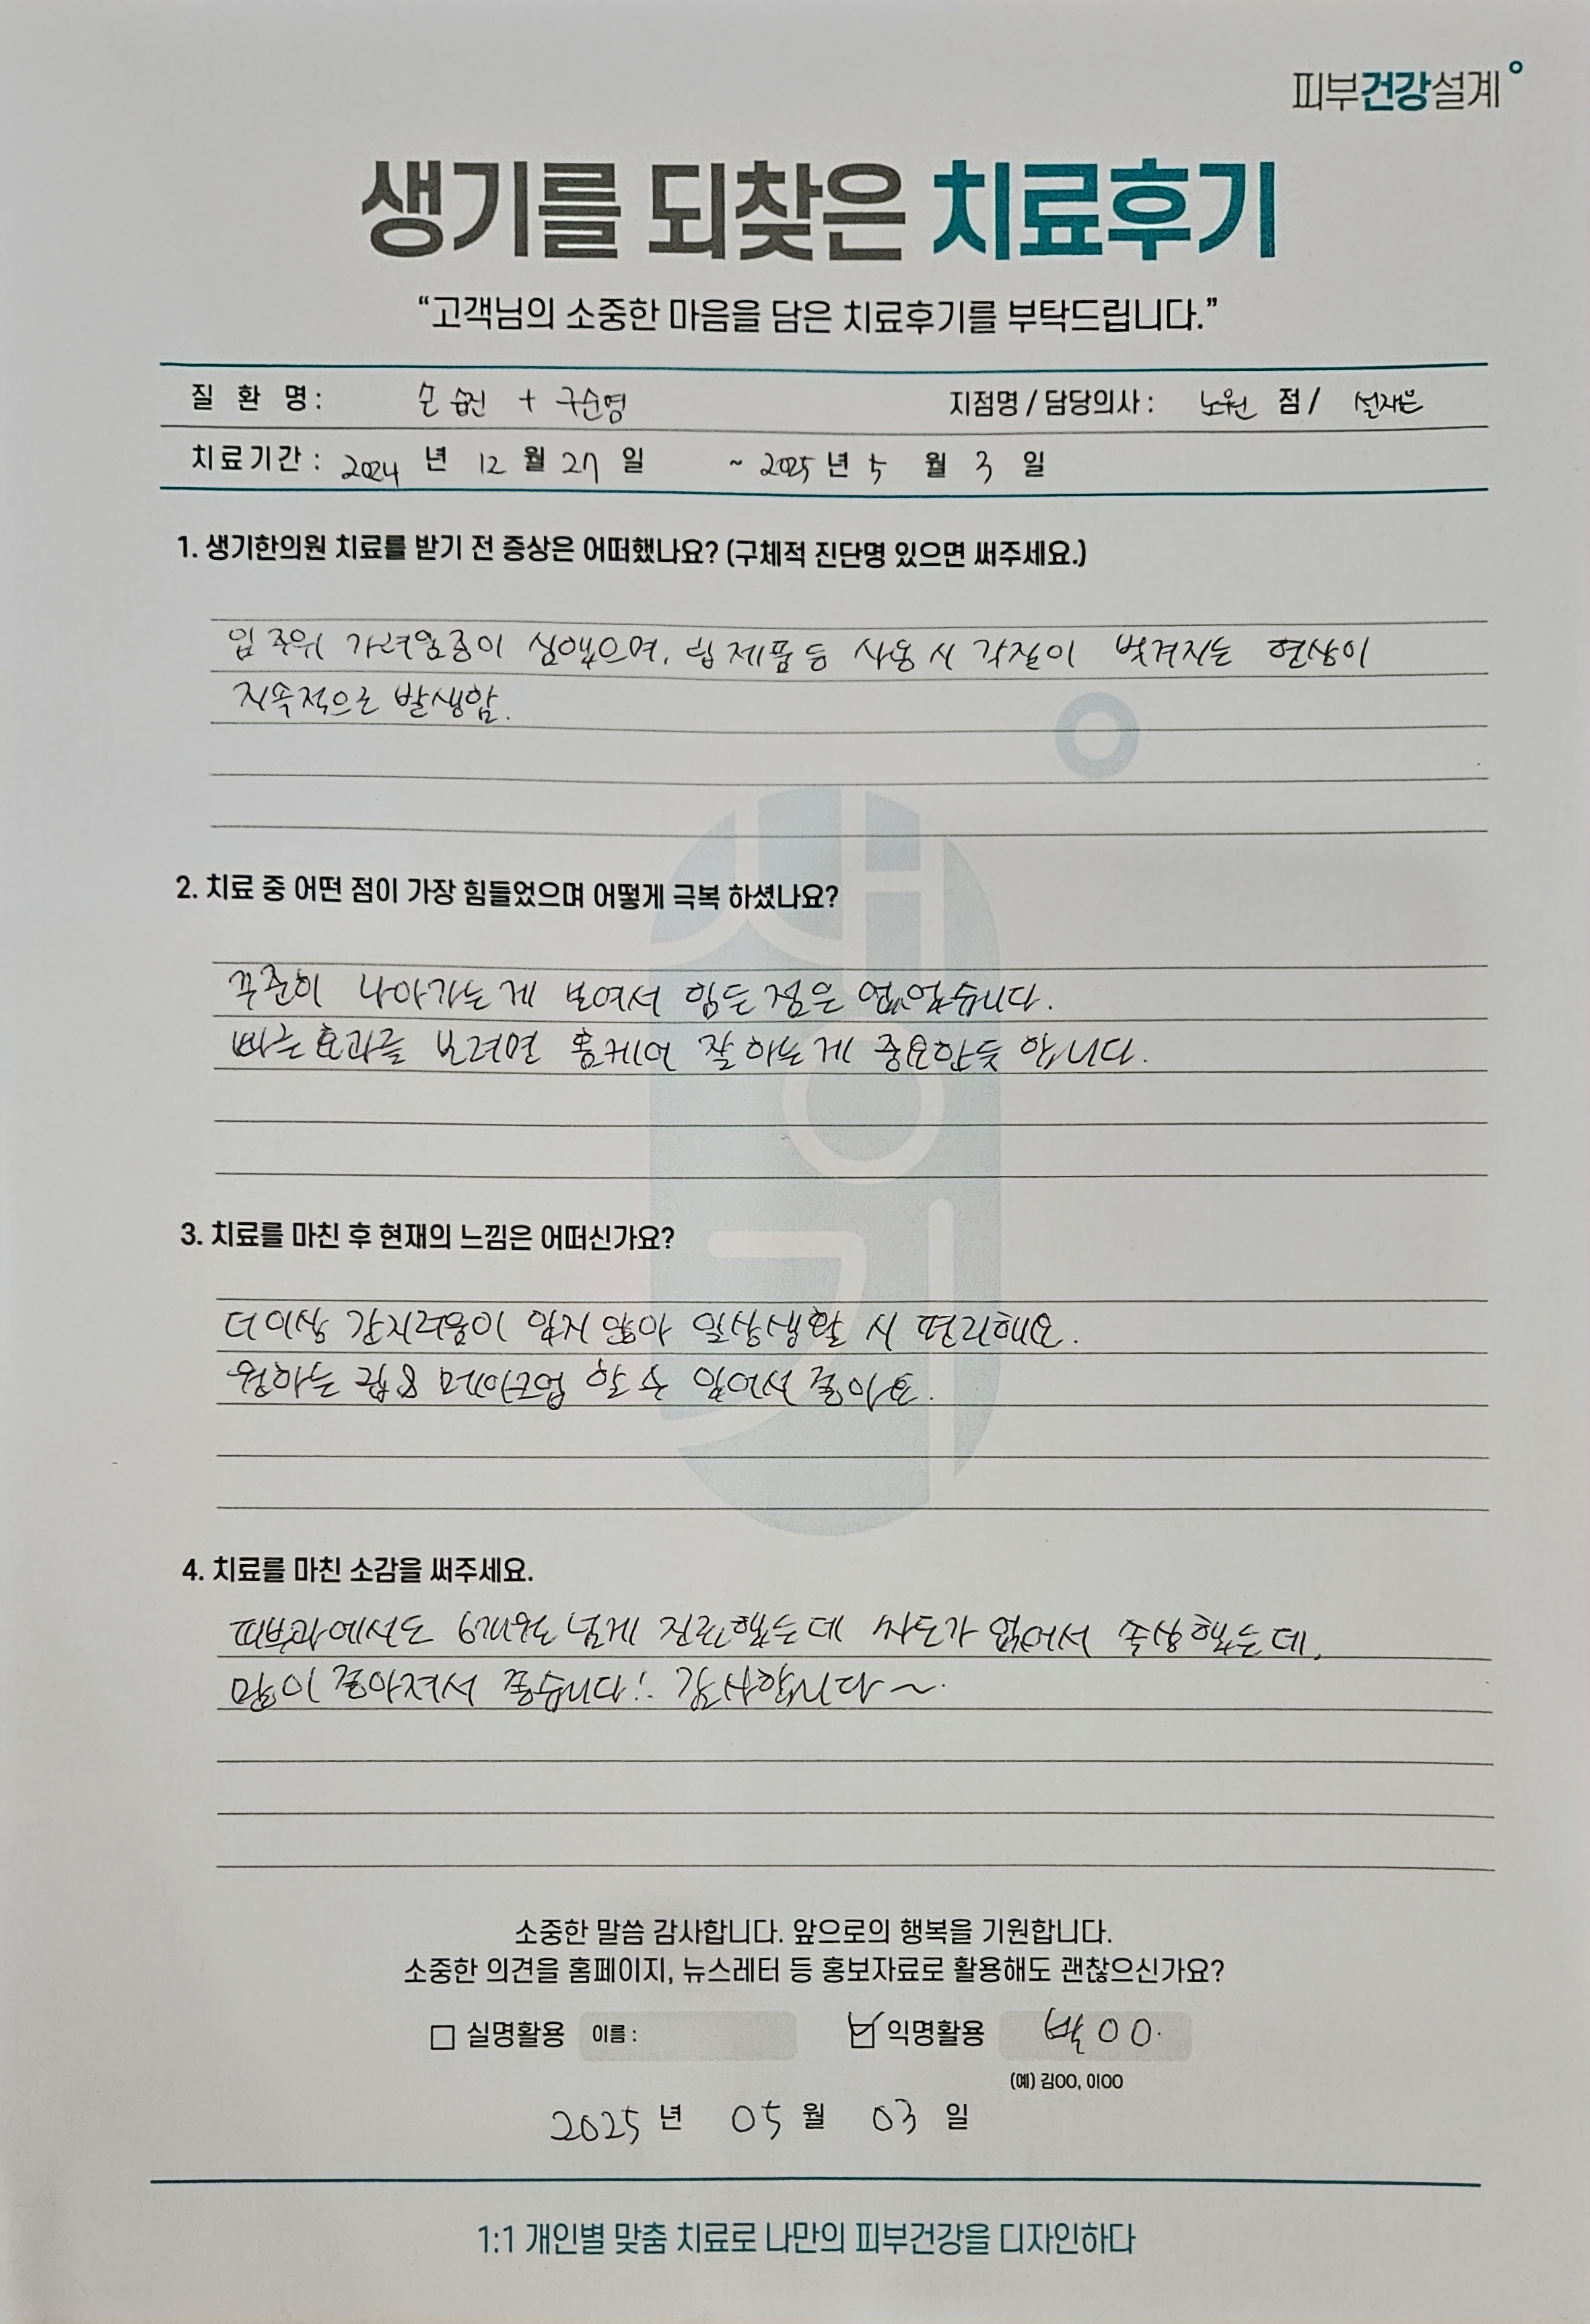 피부건강설계
생기를 되찾은 치료후기
“고객님의 소중한 마음을 담은 치료후기를 부탁드립니다.”
질 환 명 : 손 습진 + 구순염 지점명 / 담당의사 : 노원 점 / 설재은
치료기간 : 2024 년 12 월 27 일 ~ 2025 년 5 월 3 일
1. 생기한의원 치료를 받기 전 증상은 어떠했나요? (구체적 진단명 있으면 써주세요.)
입 주위 가려움증이 심했으며, 립 제품 등 사용 시 각질이 벗겨지는 현상이
지속적으로 발생함.
2. 치료 중 어떤 점이 가장 힘들었으며 어떻게 극복 하셨나요?
꾸준히 나아가는게 보여서 힘든점은 없었습니다.
빠른 효과를 보려면 홈케어 잘 하는게 중요한듯 합니다.
3. 치료를 마친 후 현재의 느낌은 어떠신가요?
더이상 간지러움이 있지 않아 일상생활 시 편리해요.
원하는 립 & 메이크업 할 수 있어서 좋아요.
4. 치료를 마친 소감을 써주세요.
피부과에서도 6개월도 넘게 진료했는데 차도가 없어서 속상했는데,
많이 좋아져서 좋습니다!. 감사합니다~.
소중한 말씀 감사합니다. 앞으로의 행복을 기원합니다.
소중한 의견을 홈페이지, 뉴스레터 등 홍보자료로 활용해도 괜찮으신가요?
실명활용 이름 : 익명활용 박OO.
(예) 김OO, 이OO
2025 년 05 월 03 일
1:1 개인별 맞춤 치료로 나만의 피부건강을 디자인하다
생기